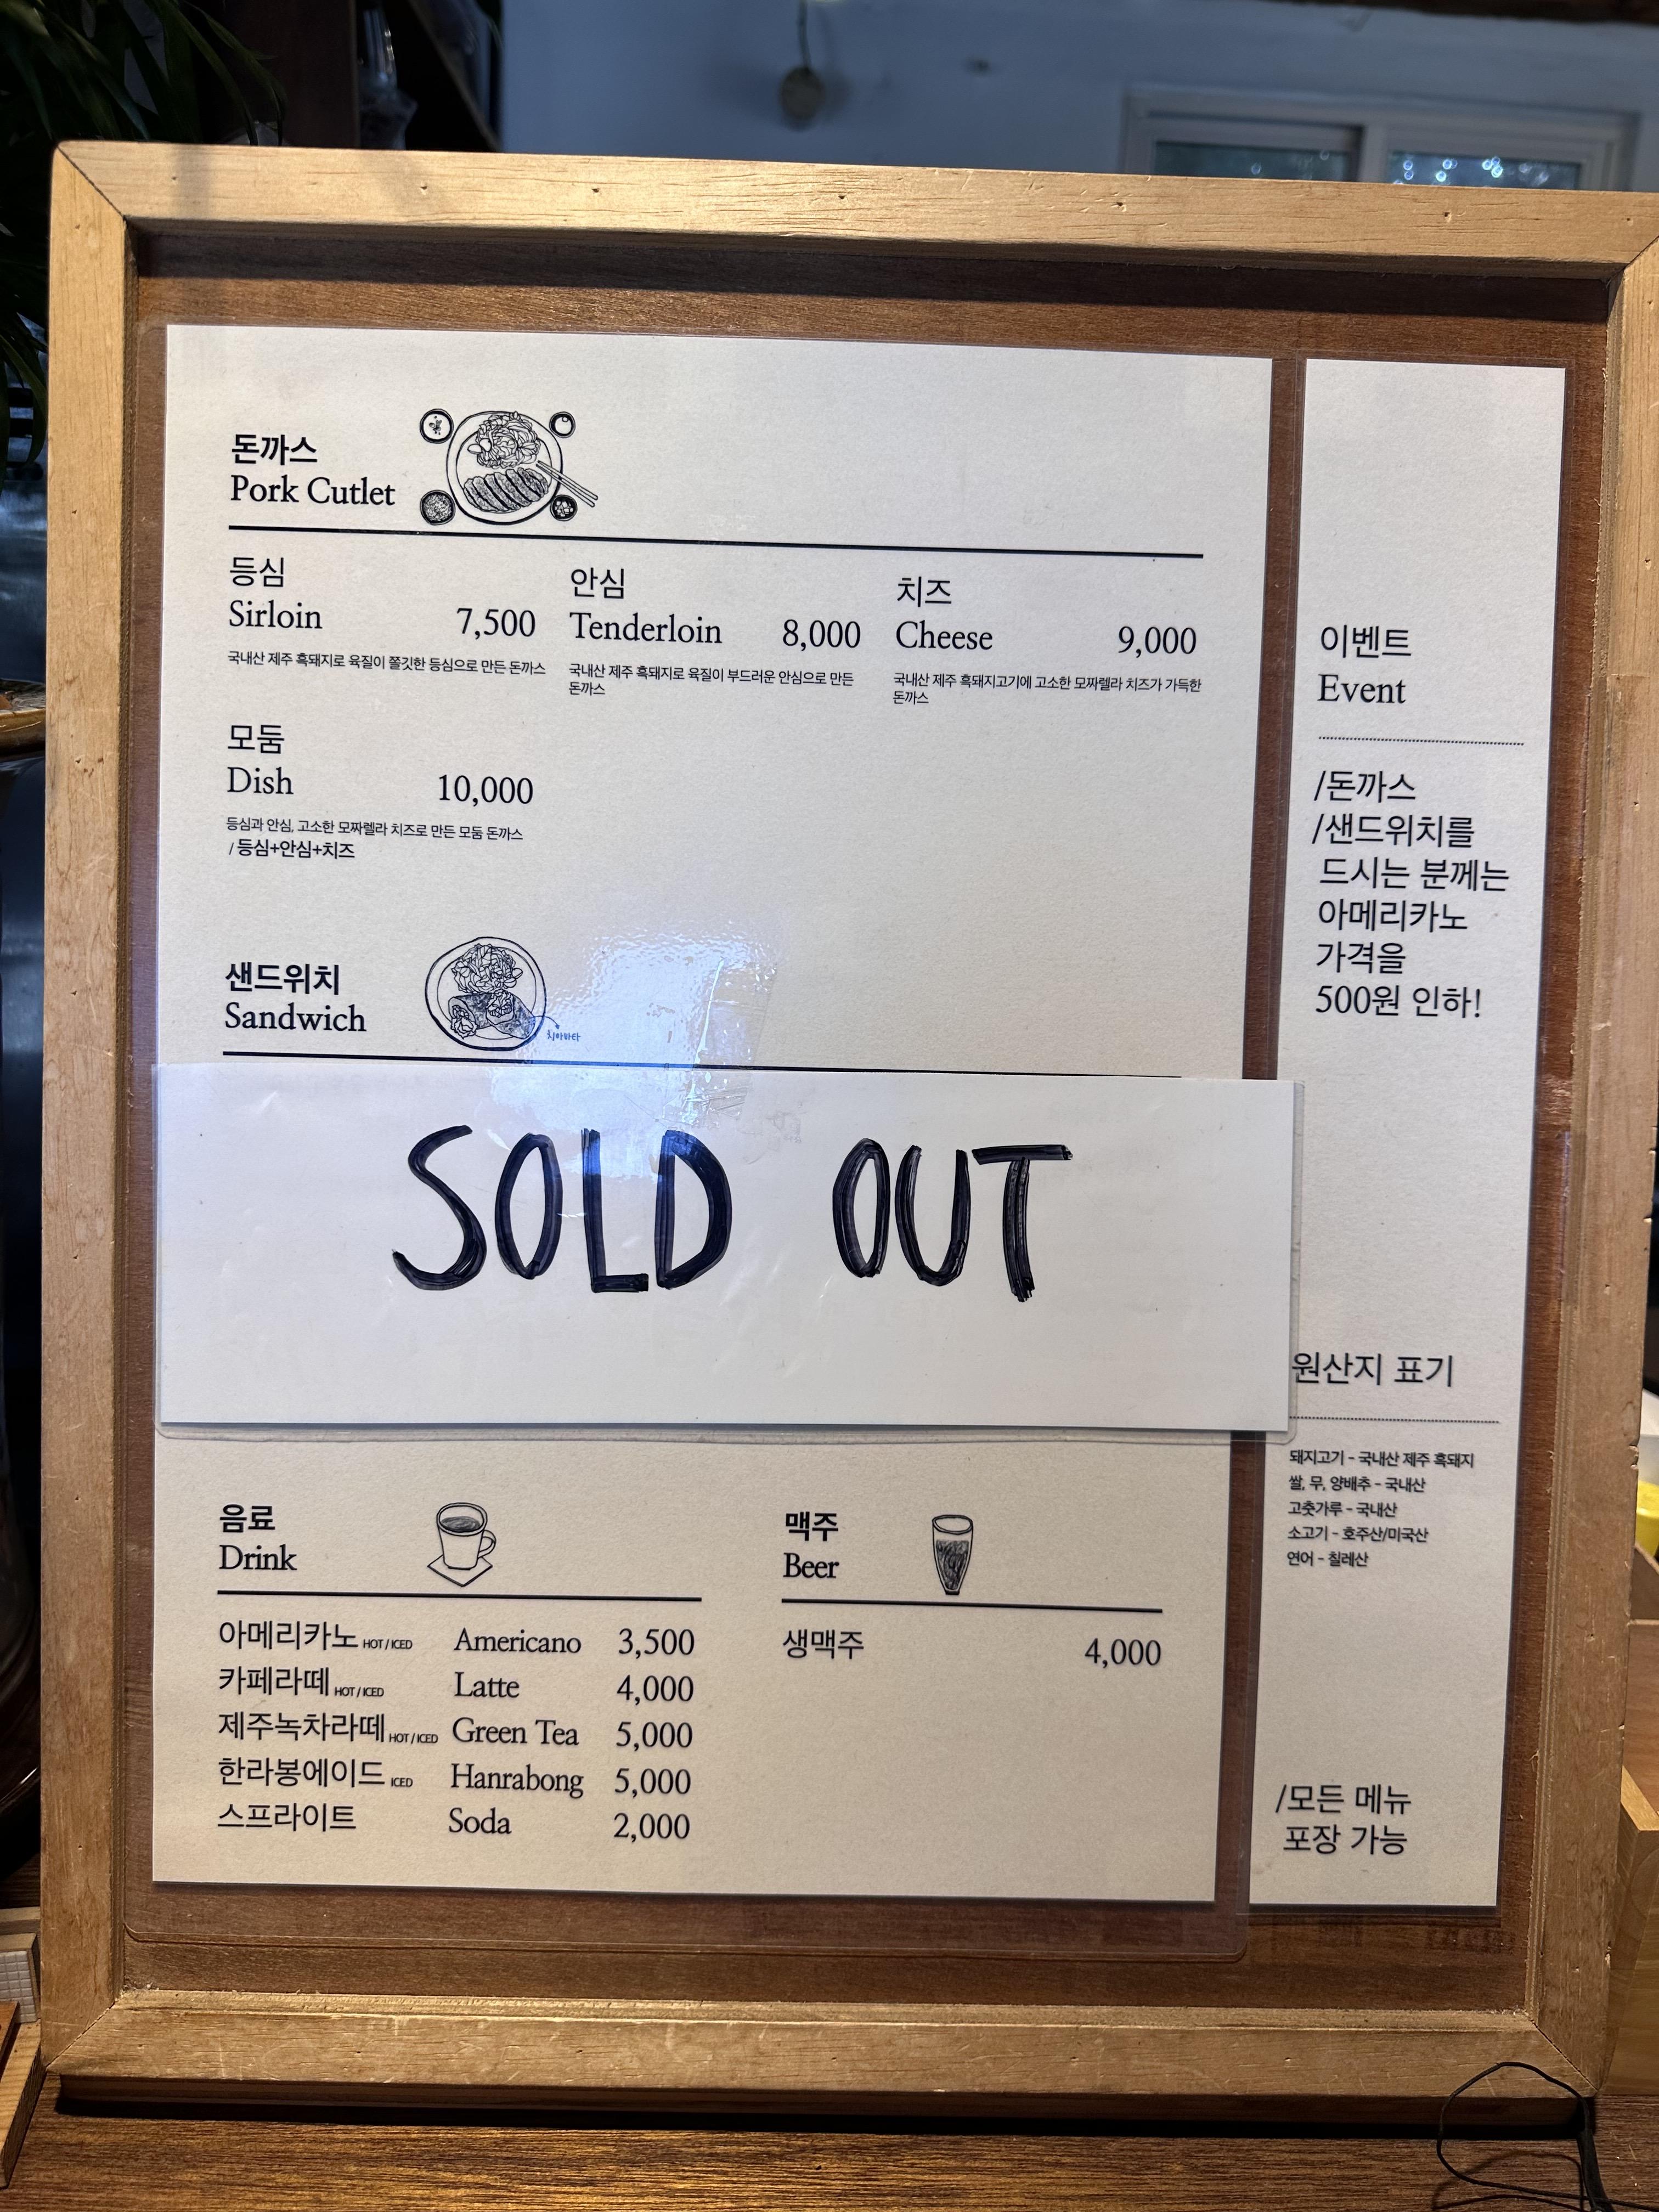 돈까스
Pork Cutlet
등심
Sirloin 7,500
국내산 제주 흑돼지로 육질이 쫄깃한 등심으로 만든 돈까스
안심
Tenderloin 8,000
국내산 제주 흑돼지로 육질이 부드러운 안심으로 만든
돈까스
치즈
Cheese 9,000
국내산 제주 흑돼지고기에 고소한 모짜렐라 치즈가 가득한
돈까스
모둠
Dish 10,000
등심과 안심, 고소한 모짜렐라 치즈로 만든 모둠 돈까스
/ 등심+안심+치즈
샌드위치
Sandwich
치아바타
SOLD OUT
음료
Drink
아메리카노 HOT / ICED Americano 3,500
카페라떼 HOT / ICED Latte 4,000
제주녹차라떼 HOT / ICED Green Tea 5,000
한라봉에이드 ICED Hanrabong 5,000
스프라이트 Soda 2,000
맥주
Beer
생맥주 4,000
이벤트
Event
/돈까스
/샌드위치를
드시는 분께는
아메리카노
가격을
500원 인하!
원산지 표기
돼지고기 - 국내산 제주 흑돼지
쌀, 무, 양배추 - 국내산
고춧가루 - 국내산
소고기 - 호주산/미국산
연어 - 칠레산
/모든 메뉴
포장 가능